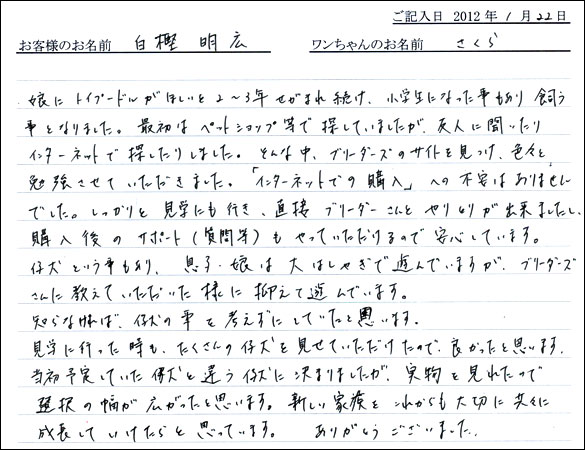 ご記入日 2012 年 1 月 22 日
お客様のお名前 白樫 明広 ワンちゃんのお名前 さくら
娘に トイプードルが ほしいと 2〜3年 せがまれ続け、小学生になった事もあり 飼う
事となりました。最初は ペットショップ等で 探していましたが、友人に聞いたり
インターネットで 探したりしました。そんな中、ブリーダーズのサイトを見つけ、色々と
勉強させて いただきました。「インターネットでの購入」への 不安はありません
でした。しっかりと 見学にも行き、直接 ブリーダーさんと やりとりが出来ましたし、
購入後の サポート(質問等)も やっていただけるので 安心しています。
仔犬という事もあり、息子・娘は 大はしゃぎで 遊んでいますが、ブリーダーズ
さんに 教えていただいた 様に 抑えて遊んでいます。
知らなければ、仔犬の事を 考えずに していたと思います。
見学に行った時も、たくさんの仔犬を見せていただけたので、良かったと思います。
当初予定していた 仔犬と違う仔犬に 決まりましたが、実物を見れたので
選択の幅が 広がったと思います。新しい家族を これからも大切に 共々に
成長して いけたらと 思っています。 ありがとうございました。